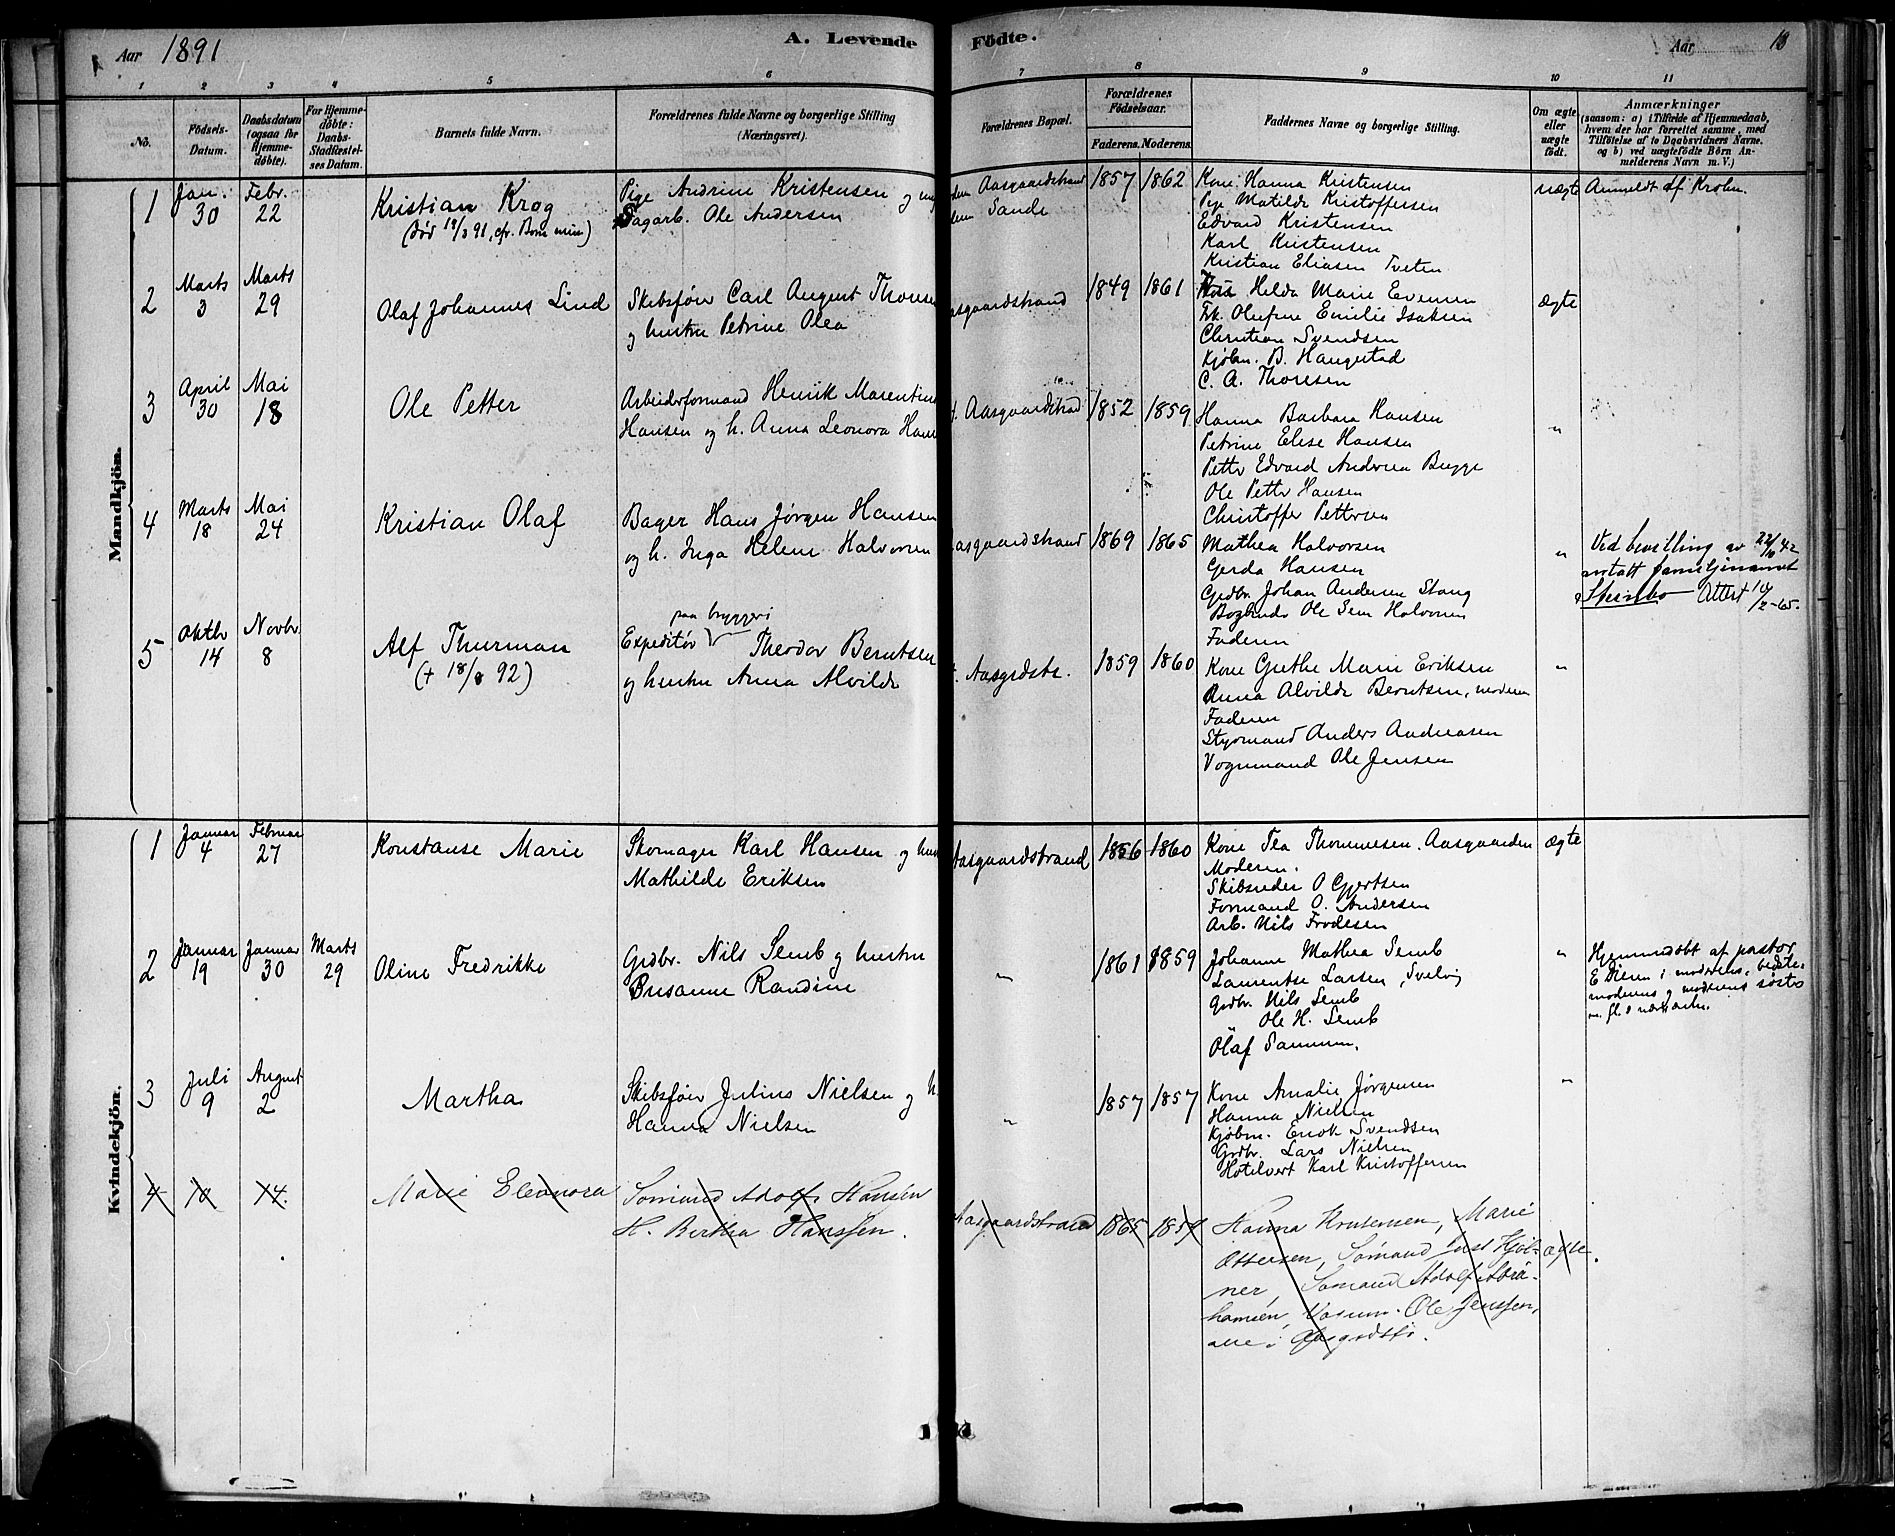 Aar 1891
A. Levende
Födte.
Aar
1 2 3 4 5 6 7 8 9 10 11
No.
Födsels-
Datum.
Daabsdatum
(ogsaa for
Hjemme-
döbte).
For Hjemme-
döbte:
Daabs-
Stadfæstel-
ses Datum.
Barnets fulde Navn.
Forældrenes fulde Navne og borgerlige Stilling
(Næringsvei).
Forældrenes Bopæl.
Forældrenes
Födselsaar.
Faderens. Moderens.
Faddernes Navne og borgerlige Stilling.
Om ægte
eller
uægte
födt.
Anmærkninger
(saasom: a) i Tilfælde af Hjemmedaab,
hvem der har forrettet samme, med
Tilföielse af to Daabsvidners Navne,
og b) ved uægtefödte Börn An-
melderens Navn m. V.)
Mandkjön.
1 Jan. 30 Febr. 22
Kristian Krog
(død 19/3 91, cfr. Bom min)
Pige Andrine Kristensen og
Sagarb. Ole Andersen
Aasgaardstrand
Sande
1857 1862
Kone Hanna Kristensen
Pige Matilde Kristoffersen
Edvard Kristensen
Karl Kristensen
Kristian Eliasen Tveten
uægte
Anmeldt af Krohn.
2 Marts 3 Marts 29
Olaf Johannes Lind
Skibsfører Carl August Thoresen
og hustru Petrine Olea
asgaardstrand
1849 1861
Helda Marie Evensen
Frk. Olufine Emilie Isaksen
Christian Svendsen
Kjøbm. B. Haugestad
C. A. Thoresen
ægte
3 April 30 Mai 18
Ole Petter
Arbeiderformand Henrik Marentius
Hansen og h. Anna Leonora Hans
Aasgaardstrad
1852 1859
Hanna Barbara Hansen
Petrine Elise Hansen
Petter Edvard Andersen Bugge
Ole Petter Hansen
Christoffer Pettersen
"
4 Marts 18 Mai 24
Kristian Olaf
Bager Hans Jørgen Hansen
og h. Inga Helene Halvorsen
asgaardstrand
1869 1865
Mathea Halvorsen
Gerda Hansen
Grdbr. Johan Andersen Stang
Ole Sem Halvorsen
Faderen
"
Ved bevilling av 22/10 42
antatt familjenavnet
Steinbo Attest 10/2-65.
5 Oktbr 14 Novbr. 8
Alf Thurman
(+ 18/8 92)
paa bryggeri
Expeditør Theodor Berntsen
og hustru Anna Alvilde
Aasgrdstr.
1859 1860
Kone Grethe Marie Eriksen
Anna Alvilde Berntsen, moderen
Faderen
Styrmand Anders Andreasen
Vognmand Ole Jensen
"
Kvindekjön.
1 Januar 4 Februar 27
Konstanse Marie
Skomager Karl Hansen og hus
Mathilde Eriksen
Aasgaardstrand
1856 1860
Kone Tea Thommesen. Aasgaarden
Moderen.
Skibsreder O Gjertsen
Formand O. Andersen
Arb. Nils Frodesen
ægte
2 Januar 19 Januar 30 Marts 29
Oline Fredrikke
Grdbr. Nils Semb og hustru
Susanne Randine
"
1861 1859
Johanne Mathea Semb
Laurentse Larsen, Svelvig
Grdbr. Nils Semb
" Ole H. Semb
Olaf Sannum.
"
Hjemmedøbt af pastor
E Diesen i moderens, bedste-
moderens og moderens søsters
m. fl.s nærværelse.
3 Juli 9 August 2
Martha
Skibsfører Julius Nielsen og h.
Hanna Nielsen
"
1857 1857
Kone Amalie Jørgensen
Hanna Nielsen
Kjøbm. Enok Svendsen
Grdbr. Lars Nielsen
Hotelvert Karl Kristoffersen
"
4 10 14.
Marie Eleonora
Sømand Adolf Hansen
H. Bertha Hanssen.
Aasgaardstrand
1865 1854
Hanna Kristensen, Marie
Ottersen, Sømand Carl Hjøl-
ner, Sømand Adolf Abra-
hamsen, Vognm. Ole Jenssen,
alle i Aasgrdstr.
ægte.